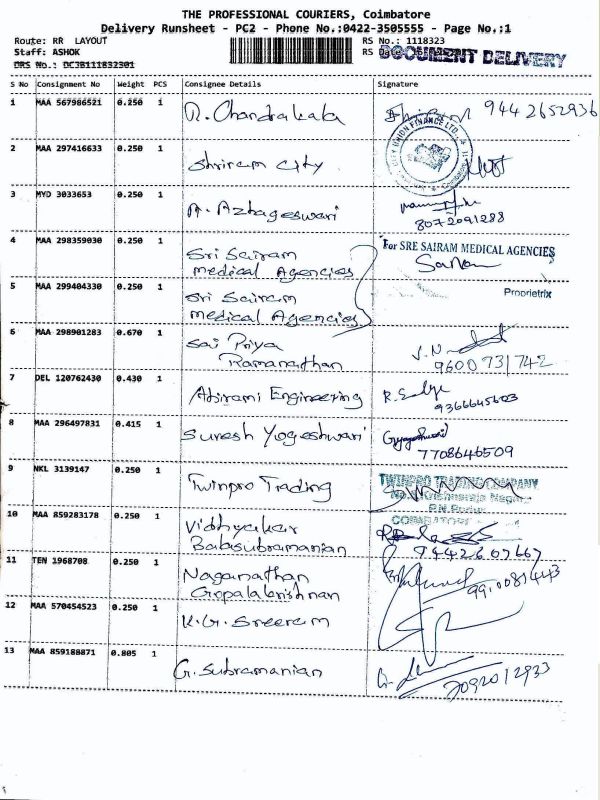 THE PROFESSIONAL COURIERS, Coimbatore
Delivery Runsheet - PC2 - Phone No.:0422-3505555 - Page No.:1
Route: RR LAYOUT
RS No.: 1118323
Staff: ASHOK
RS Date:
DOCUMENT DELIVERY
DRS No.: DCJB111832301
S No Consignment No Weight PCS Consignee Details Signature
1 MAA 567986521 0.250 1 R. Chandrakala 9442652936
2 MAA 297416633 0.250 1 Shriram City
CITY UNION FINANCE LTD.
3 MYD 3033653 0.250 1 A. Azhageswari
8072091288
4 MAA 298359030 0.250 1 Sri Sairam
medical Agencies
For SRE SAIRAM MEDICAL AGENCIES
5 MAA 299404330 0.250 1 Sri Sairam
medical Agencies
Proprietrix
6 MAA 298901283 0.670 1 Sai Priya
Ramanathan
9600731742
7 DEL 120762430 0.430 1 Abirami Engineering
9366645603
8 MAA 296497831 0.415 1 Suresh Yogeshwari
7708646509
9 NKL 3139147 0.250 1 Twinpro Trading
TWINPRO TRADING COMPANY
COIMBATORE
10 MAA 859283178 0.250 1 Vidhyakar
Balasubramanian
9442607667
11 TEN 1968708 0.250 1 Naganathan
Gopalakrishnan
12 MAA 570454523 0.250 1 K.G. Sreeram
13 MAA 859188871 0.805 1 G. Subramanian
7092012933